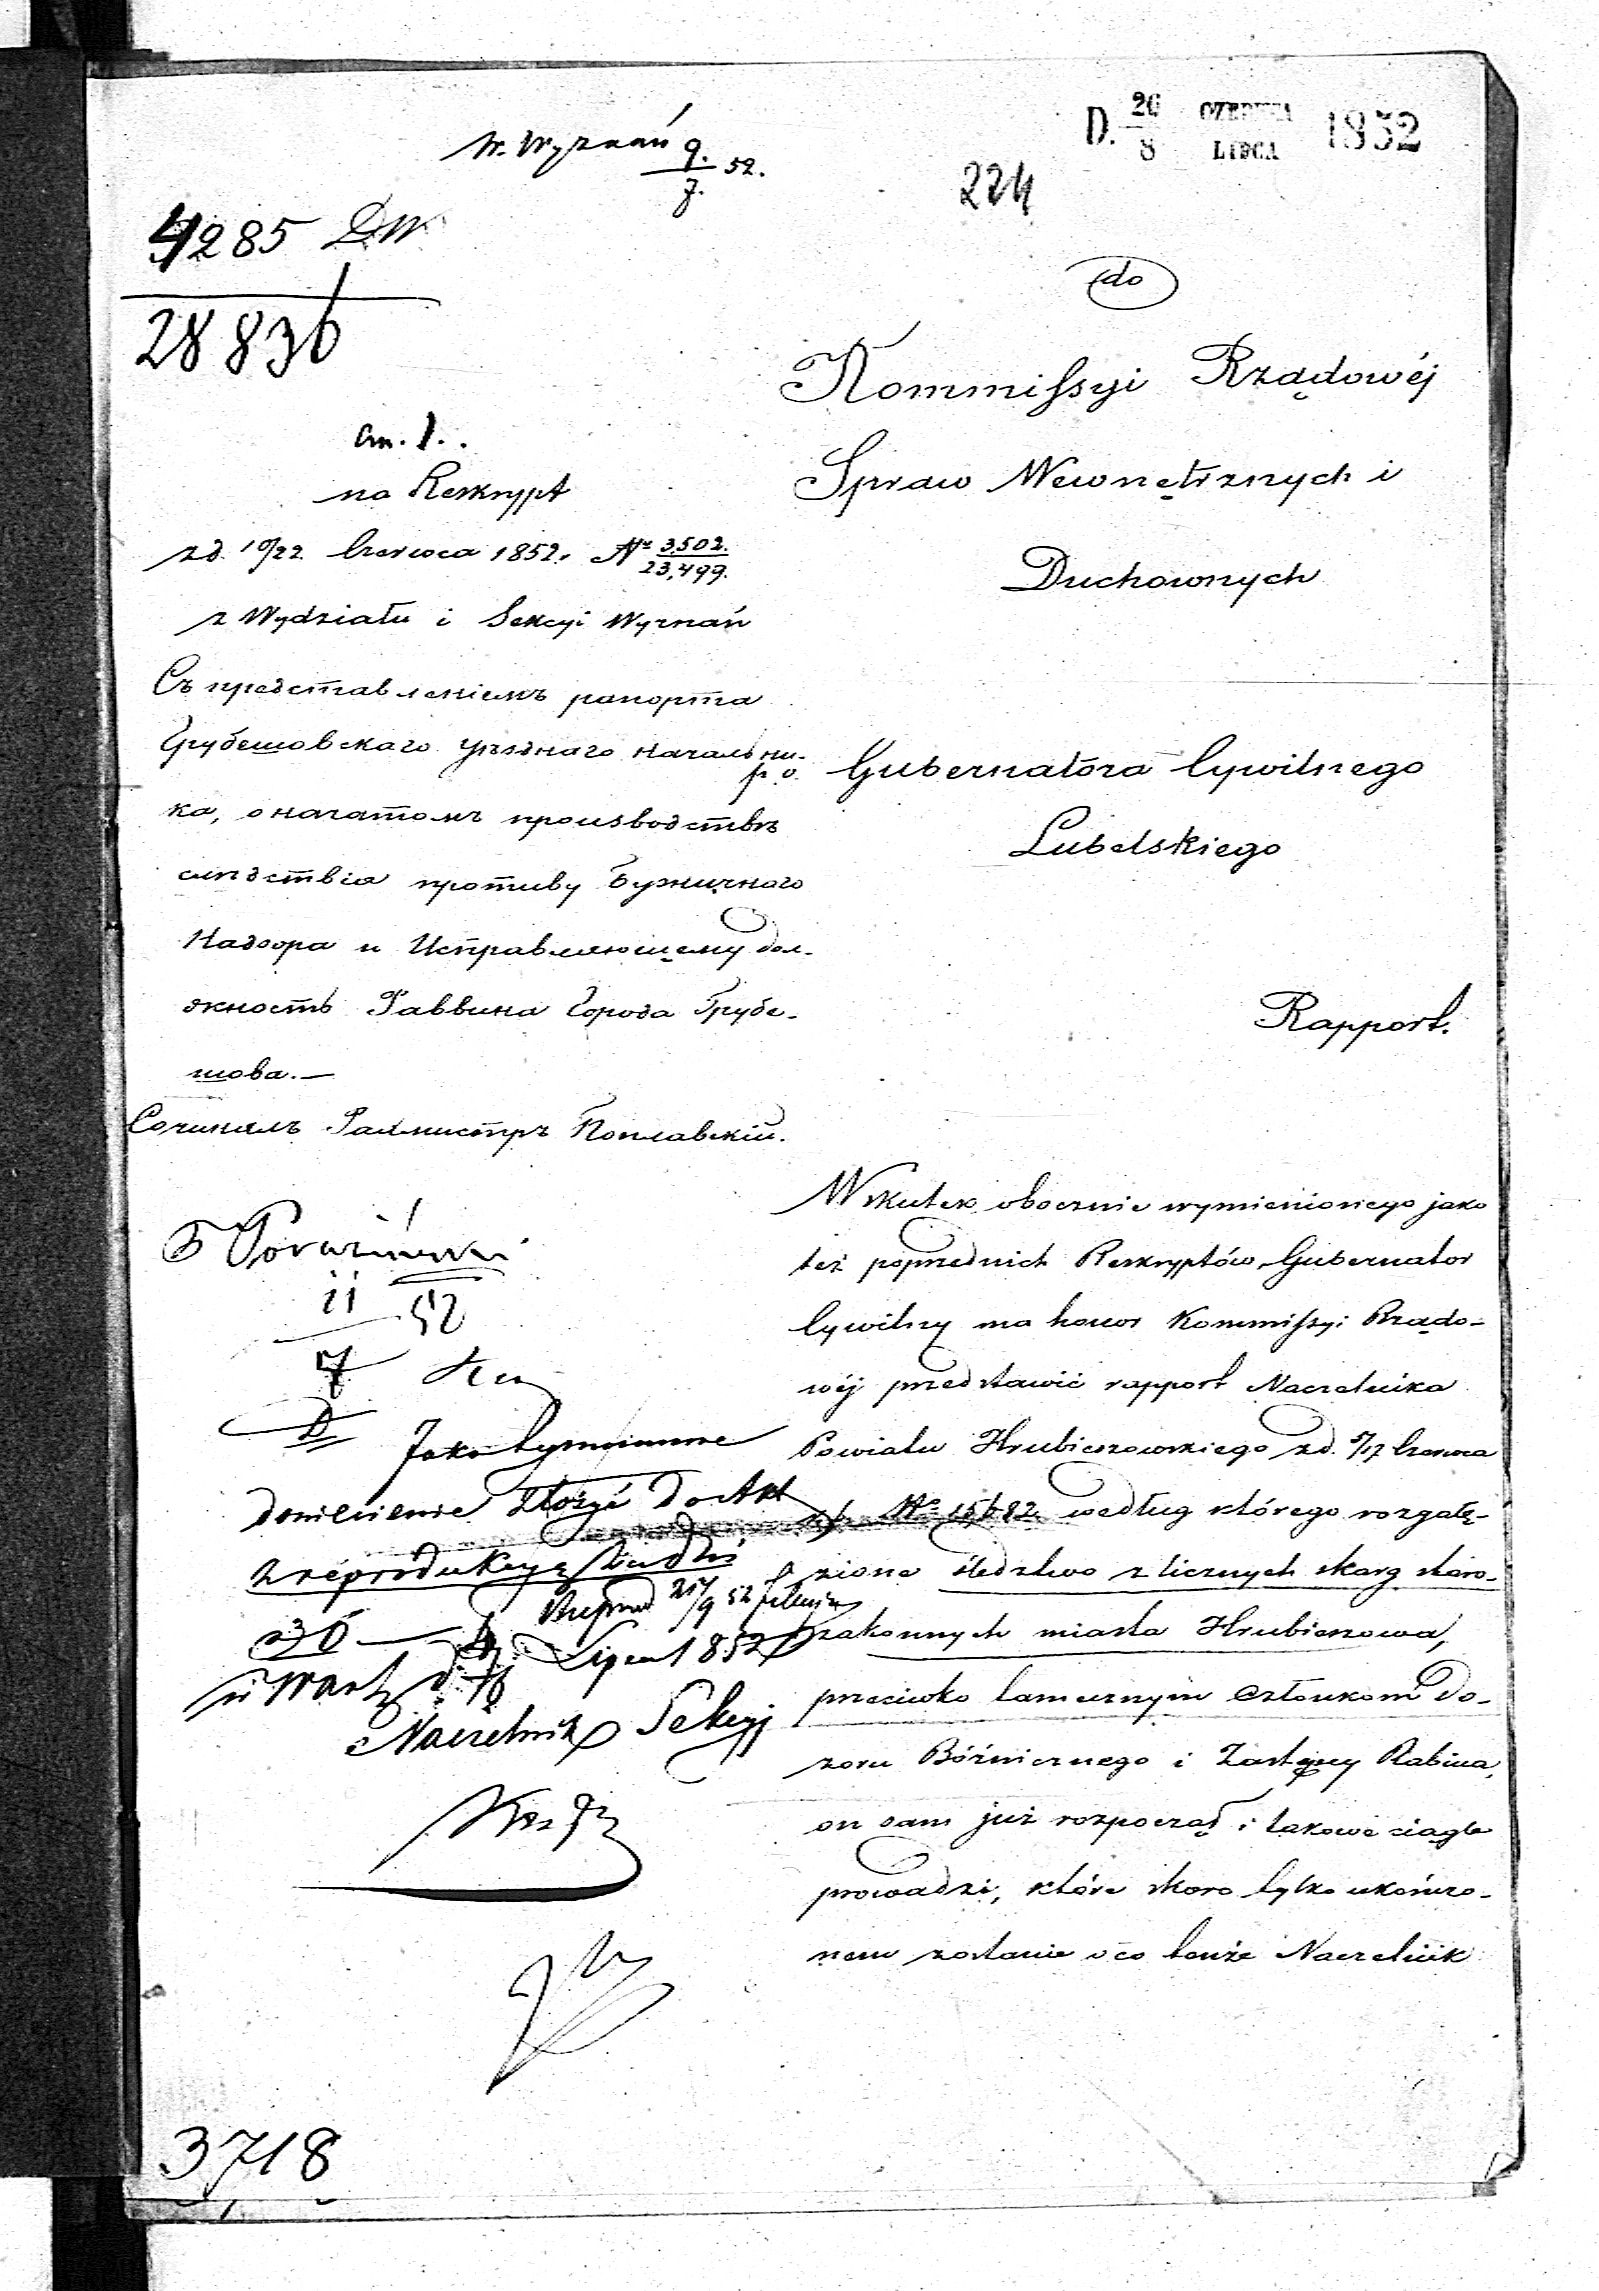 W. Wyznań 9./7. 52.
D. 26/8 CZERWCA/LIPCA 1852
224
4285 DW
28836
do
Kommissyi Rządowéj
Spraw Wewnętrznych i
Duchownych
an. 1.
na Reskrypt
z d. 10/22 Czerwca 1852. No 3502./23,499.
z Wydziału i Sekcyi Wyznań
Съ представленіемъ рапорта
Грубешовскаго уѣзднаго начальни-
ка, о начатомъ производствѣ
слѣдствія противу Бузничнаго
Надзора и Исправляющему дол-
жность Раввина Города Грубе-
шова.—
Сочинялъ Радмистръ Поплавскій.
p. o. Gubernatora Cywilnego
Lubelskiego
Rapport.
Wskutek obocznie wymienionego jako
też poprzednich Reskryptów, Gubernator
Cywilny ma honor Kommissyi Rządo-
wéj przedstawić rapport Naczelnika
Powiatu Hrubieszowskiego z d. 5/17 Czerwca
No według którego rozgałę-
zione śledztwo z licznych skarg staro-
zakonnych miasta Hrubieszowa,
przeciwko tamecznym Członkom Do-
zoru Bóźnicznego i Zastępcy Rabina,
on sam już rozpoczął i takowe ciągle
prowadzi, które skoro tylko ukończo-
nem zostanie o co tenże Naczelnik
11/7 52
Jako tymczasowe
doniesienie złożyć do Akt
z reprodukcyą
Lipca 1852
Naczelnik Sekcyi
3718